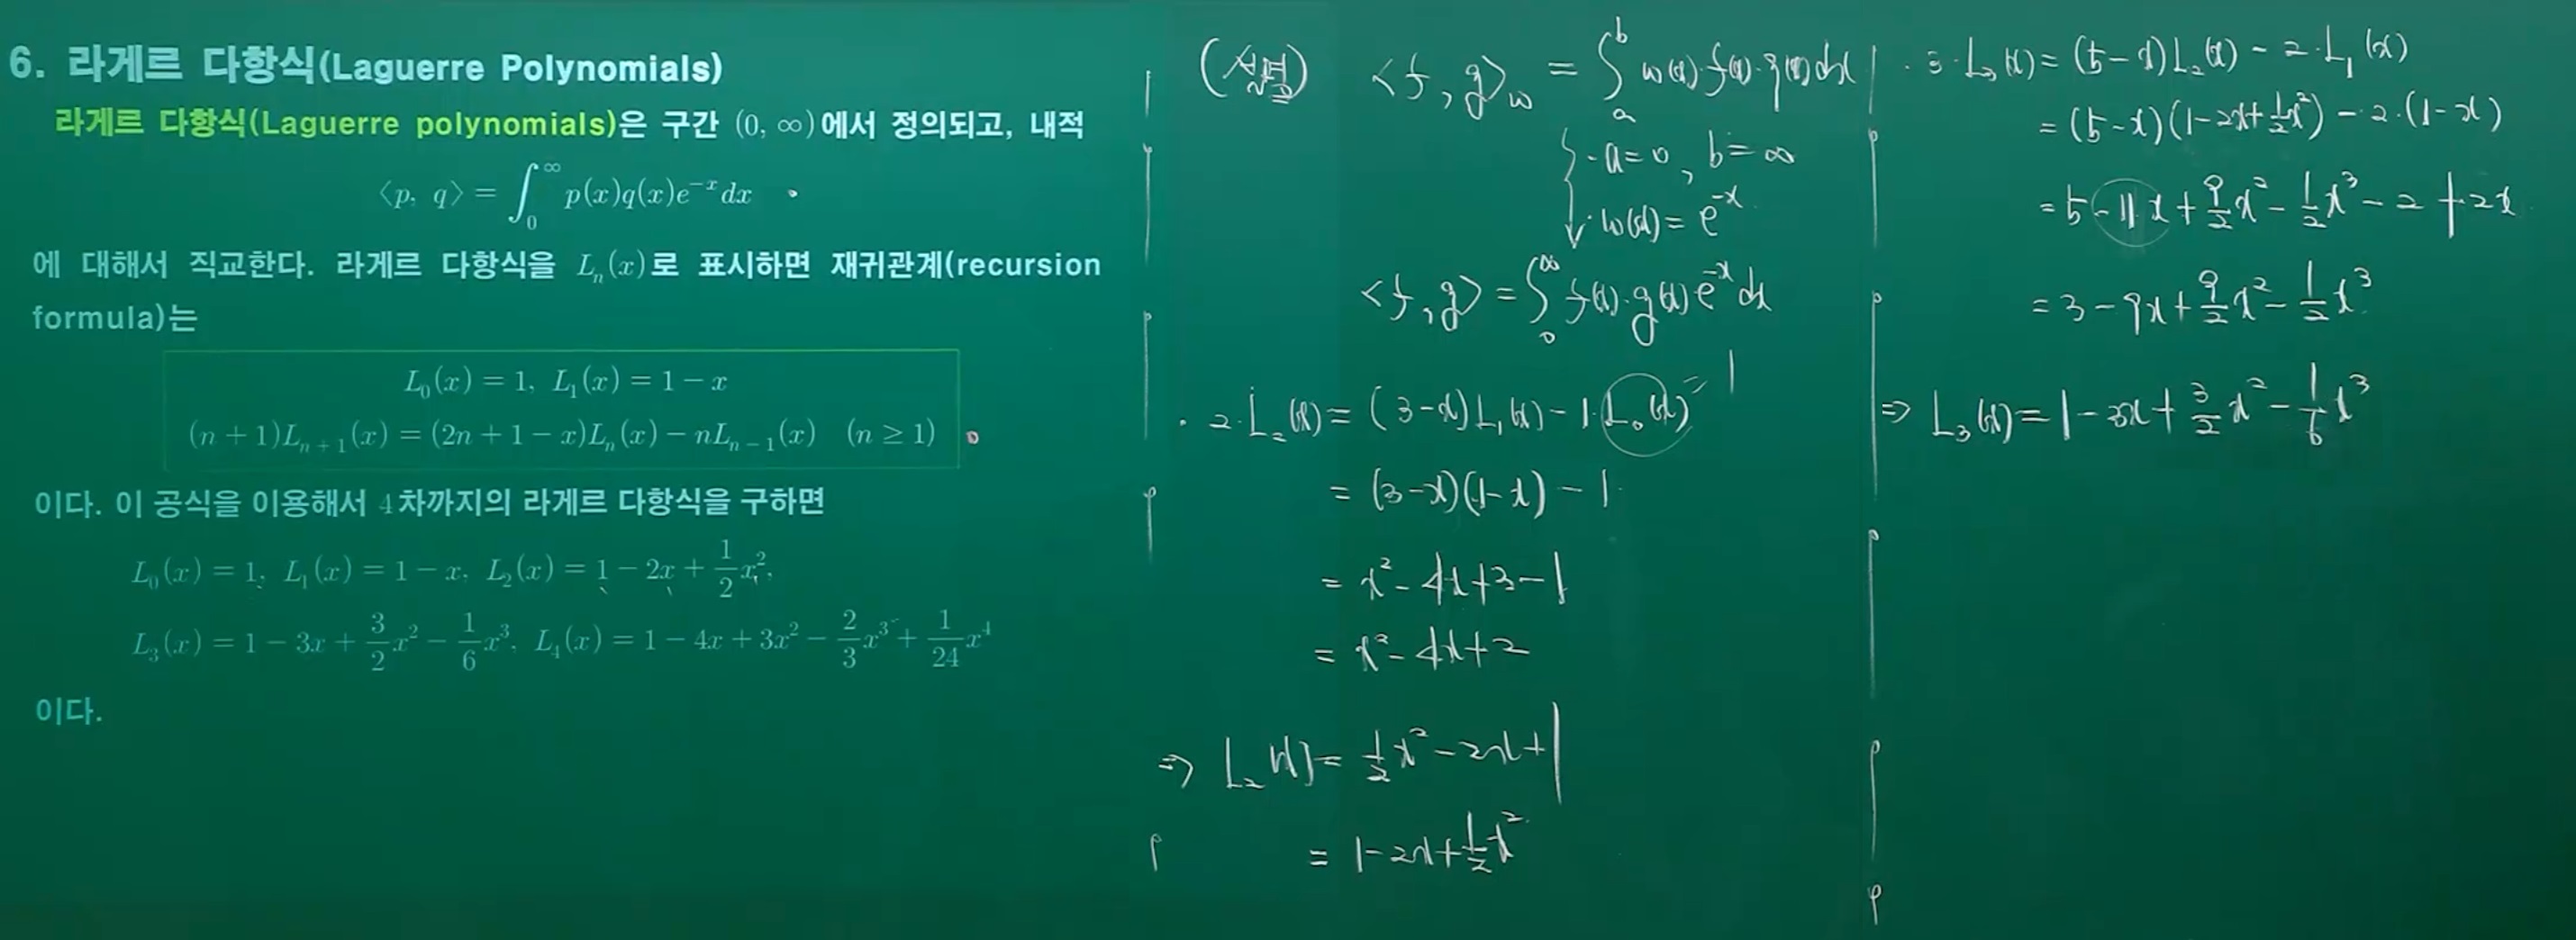 6. 라게르 다항식(Laguerre Polynomials)
라게르 다항식(Laguerre polynomials)은 구간 (0, ∞)에서 정의되고, 내적
⟨p, q⟩ = ∫₀^∞ p(x)q(x)e^{-x}dx
에 대해서 직교한다. 라게르 다항식을 Lₙ(x)로 표시하면 재귀관계(recursion
formula)는
L₀(x) = 1, L₁(x) = 1 − x
(n + 1)L_{n+1}(x) = (2n + 1 − x)L_n(x) − nL_{n−1}(x) (n ≥ 1)
이다. 이 공식을 이용해서 4차까지의 라게르 다항식을 구하면
L₀(x) = 1, L₁(x) = 1 − x, L₂(x) = 1 − 2x + \frac{1}{2}x²,
L₃(x) = 1 − 3x + \frac{3}{2}x² − \frac{1}{6}x³, L₄(x) = 1 − 4x + 3x² − \frac{2}{3}x³ + \frac{1}{24}x⁴
이다.
(설명) <f, g>_w = ∫_a^b w(x)·f(x)·g(x)dx
· a=0, b=∞
· w(x) = e^{-x}
<f, g> = ∫₀^∞ f(x)·g(x)e^{-x}dx
· 2·L₂(x) = (3−x)L₁(x) − 1·L₀(x) = 1
= (3−x)(1−x) − 1
= x² − 4x + 3 − 1
= x² − 4x + 2
⇒ L₂(x) = \frac{1}{2}x² − 2x + 1
= 1 − 2x + \frac{1}{2}x²
· 3·L₃(x) = (5−x)L₂(x) − 2·L₁(x)
= (5−x)(1−2x+\frac{1}{2}x²) − 2·(1−x)
= 5 − 11x + \frac{9}{2}x² − \frac{1}{2}x³ − 2 + 2x
= 3 − 9x + \frac{9}{2}x² − \frac{1}{2}x³
⇒ L₃(x) = 1 − 3x + \frac{3}{2}x² − \frac{1}{6}x³